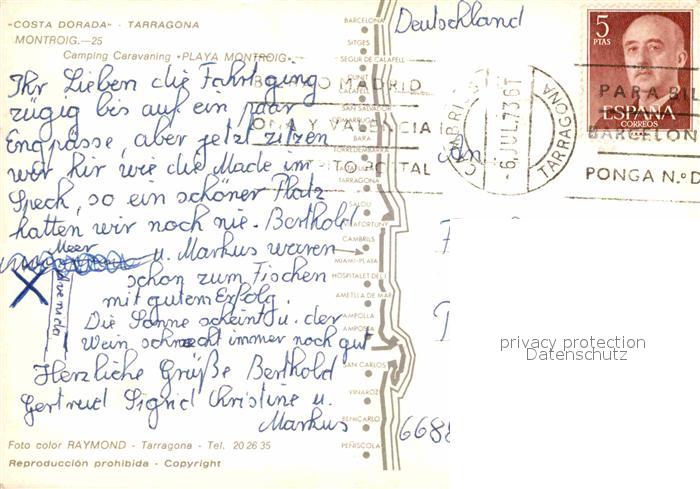 «COSTA DORADA» - TARRAGONA
MONTROIG.—25
Camping Caravaning «PLAYA MONTROIG»
Ihr Lieben die Fahrt ging
zügig bis auf ein paar
Engpässe, aber jetzt zitzen
wir hir wie die Made im
Speck, so ein schöner Platz
hatten wir noch nie. Berthold
u. Markus waren
schon zum Fischen
mit gutem Erfolg.
Die Sonne scheint u. der
Wein schmeckt immer noch gut
Herzliche Grüße Berthold
Gertrud Sigrid Christine u.
Markus
Meer
Foto color RAYMOND - Tarragona - Tel. 20 26 35
Reproducción prohibida - Copyright
BARCELONA
SITGES
SEGUR DE CALAFELL
CALAFELL
SAN SALVADOR
BARA
TORREDEMBARRA
TARRAGONA
SALOU
CAMBRILS
MIAMI-PLAYA
HOSPITALET DEL I
AMETLLA DE MAR
AMPOLLA
AMPOSTA
SAN CARLOS
VINAROZ
BENICARLO
PEÑISCOLA
Deutschland
An
668
MADRID
ONA Y VALENCIA
ITO POSTAL
CAMBRILS
-6.JUL.73
TARRAGONA
5
PTAS
ESPAÑA
CORREOS
PARA BIL
BARCELON
PONGA N.º D
privacy protection
Datenschutz